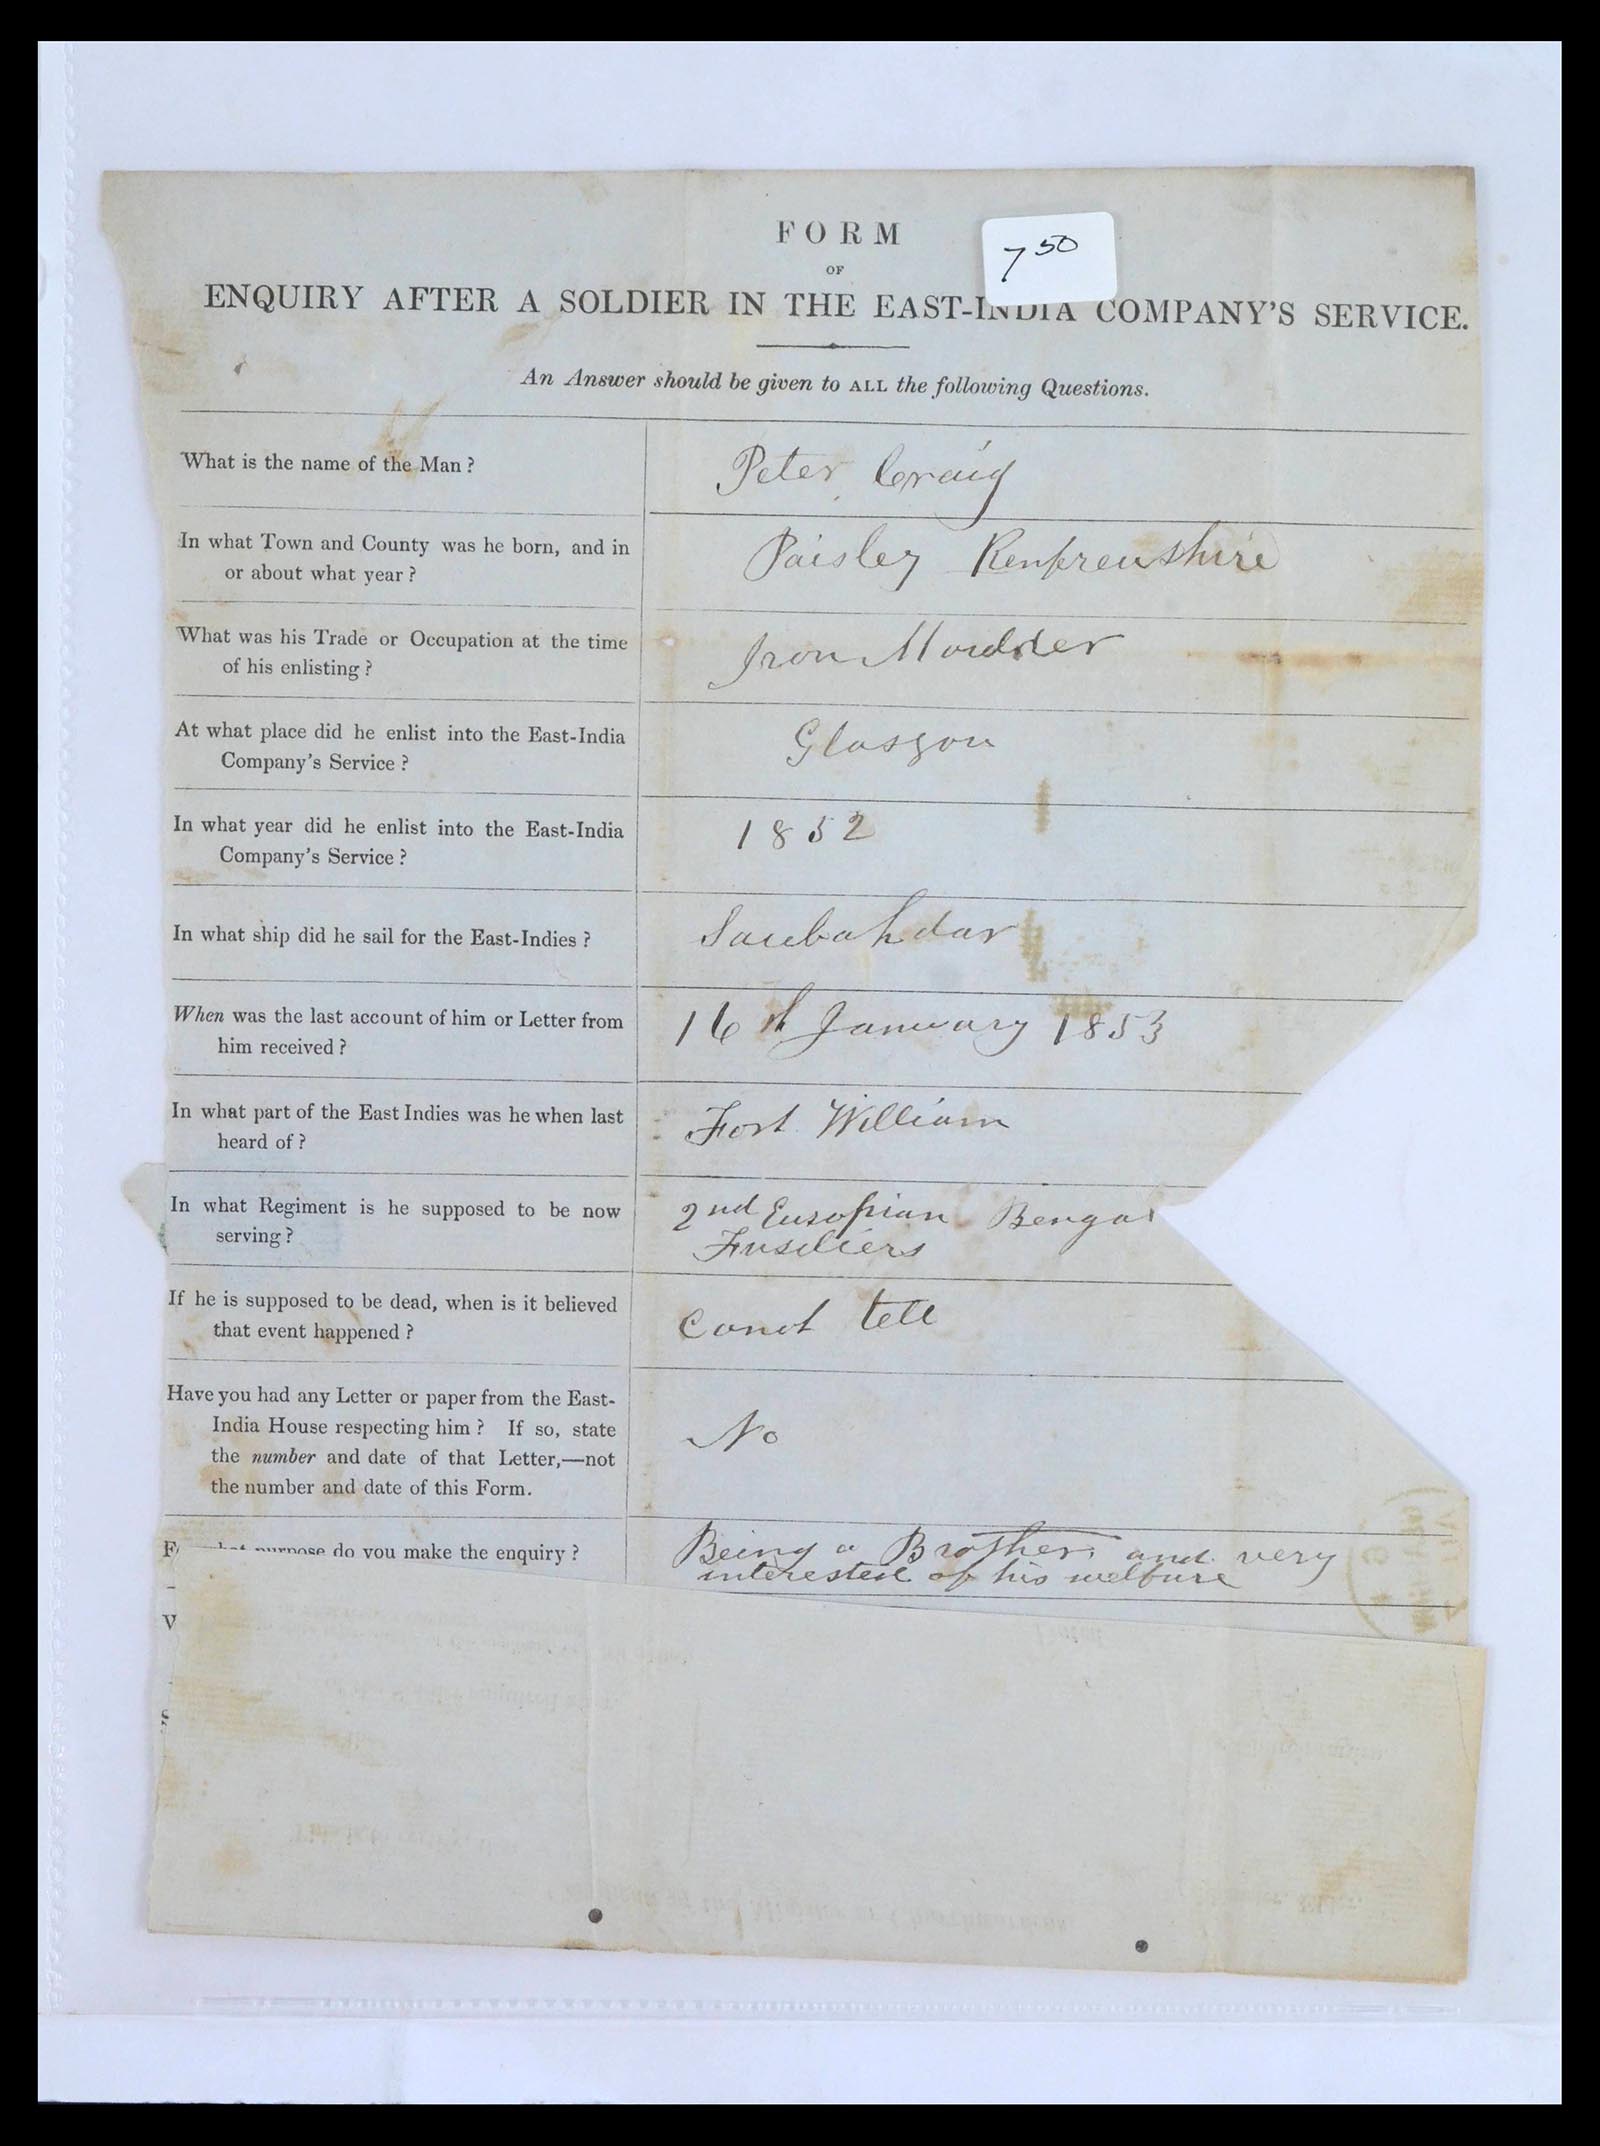 FORM
OF
ENQUIRY AFTER A SOLDIER IN THE EAST-INDIA COMPANY'S SERVICE.
7 50
An Answer should be given to ALL the following Questions.
What is the name of the Man?
Peter Craig
In what Town and County was he born, and in
or about what year?
Paisley Renfrewshire
What was his Trade or Occupation at the time
of his enlisting?
Iron Moulder
At what place did he enlist into the East-India
Company's Service?
Glasgow
In what year did he enlist into the East-India
Company's Service?
1852
In what ship did he sail for the East-Indies?
Saubahdar
When was the last account of him or Letter from
him received?
16th January 1853
In what part of the East Indies was he when last
heard of?
Fort William
In what Regiment is he supposed to be now
serving?
2nd Europian Bengal
Fusiliers
If he is supposed to be dead, when is it believed
that event happened?
Canot tell
Have you had any Letter or paper from the East-
India House respecting him? If so, state
the number and date of that Letter,—not
the number and date of this Form.
No
purpose do you make the enquiry?
Being a Brother and very
interested of his welfare